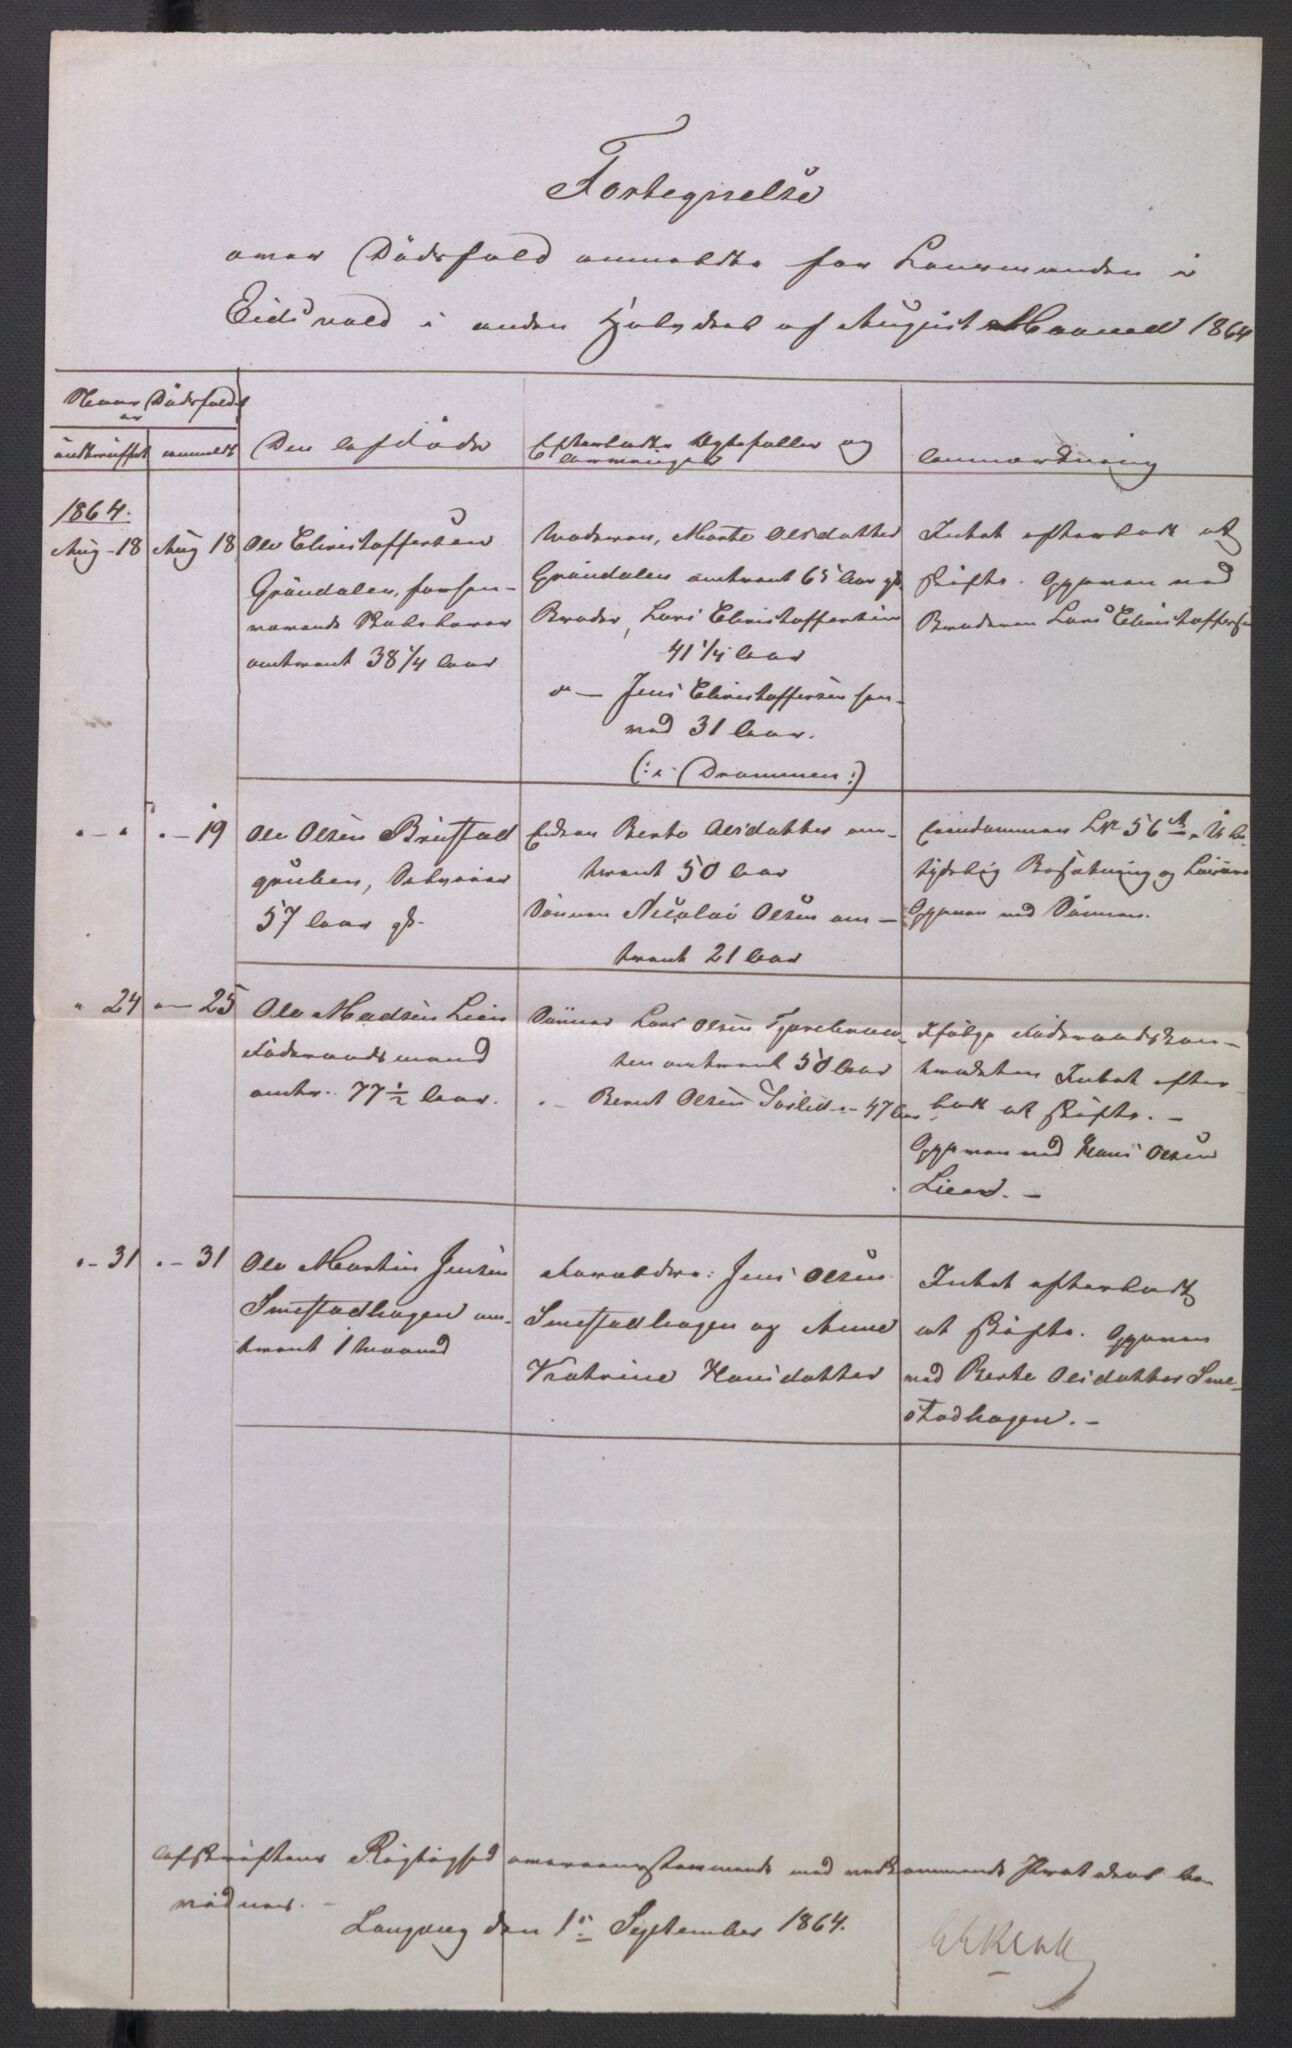 Fortegnelse
over Dödsfald anmeldte for Lensmanden i
Eidsvold i anden Halvdeel af August Maaned 1864
Naar Dödsfaldet
er
indtruffet anmeldt
Den Afdöde
Efterladte Ægtefæller og
Arvinger
Anmærkning
1864.
Aug - 18 Aug 18
Ole Christoffersen
Gröndalen, forhen-
værende
omtrent 38 1/4 Aar
Moderen, Marte Olsdatter
Gröndalen omtrent 65 Aar gl.
Broder, Lars Christoffersen
41 1/4 Aar
" — Jens Christoffersen
31 Aar.
(: i Drammen :)
Intet efterladt at
skifte. Opgaven ved
Broderen Lars Christoffersen
" - " " - 19
Ole Olsen Brustad
gruben, Selveier
57 Aar gl.
Enken Berte Olsdatter om-
trent 50 Aar
Sönnen Nicolai Olsen om-
trent 21 Aar
Eiendommen LN 56
tydelig Besætning og Lösöre
Opgaven ved Sönnen.
" 24 " — 25
Ole Madsen Lien
Föderaadsmand
omtr. 77 1/2 Aar.
Sönner Lars Olsen
omtrent 50 Aar
" - Bernt Olsen " - 47 Aar
Ifölge Föderaadskon-
trakten Intet efter-
ladt at skifte. -
Opgaven ved Hans Olsen
Lien. -
" - 31 " - 31
Ole Martin Jensen
Smestadhagen om-
trent 1 Maaned
Forældre: Jens Olsen
Smestadhagen og Anne
Katrine Hansdatter
Intet efterladt
at skifte. Opgaven
ved Berte Olsdatter Sme-
stadhagen. -
Afskriftens Rigtighed overeensstemmende med vedkommende Protokol be-
vidner. -
den 1ste September 1864.